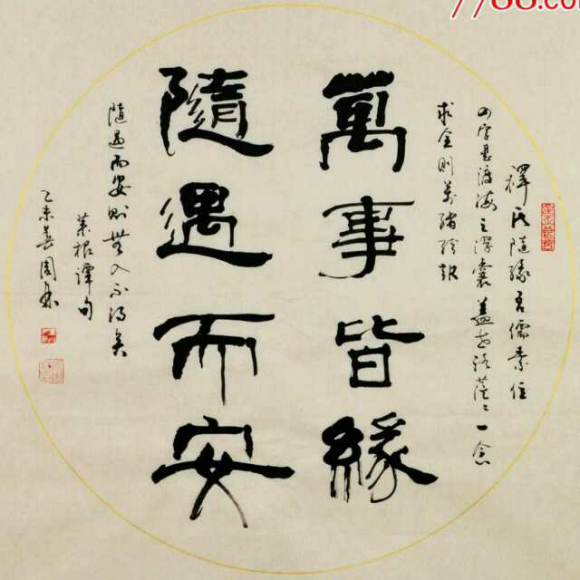 釋氏隨緣吾儒素位
四字是渡海之浮囊蓋世路茫〻一念
求全則萬緒紛起
萬事皆緣
隨遇而安
隨遇而安則無入不得矣
菜根譚句
乙未春周